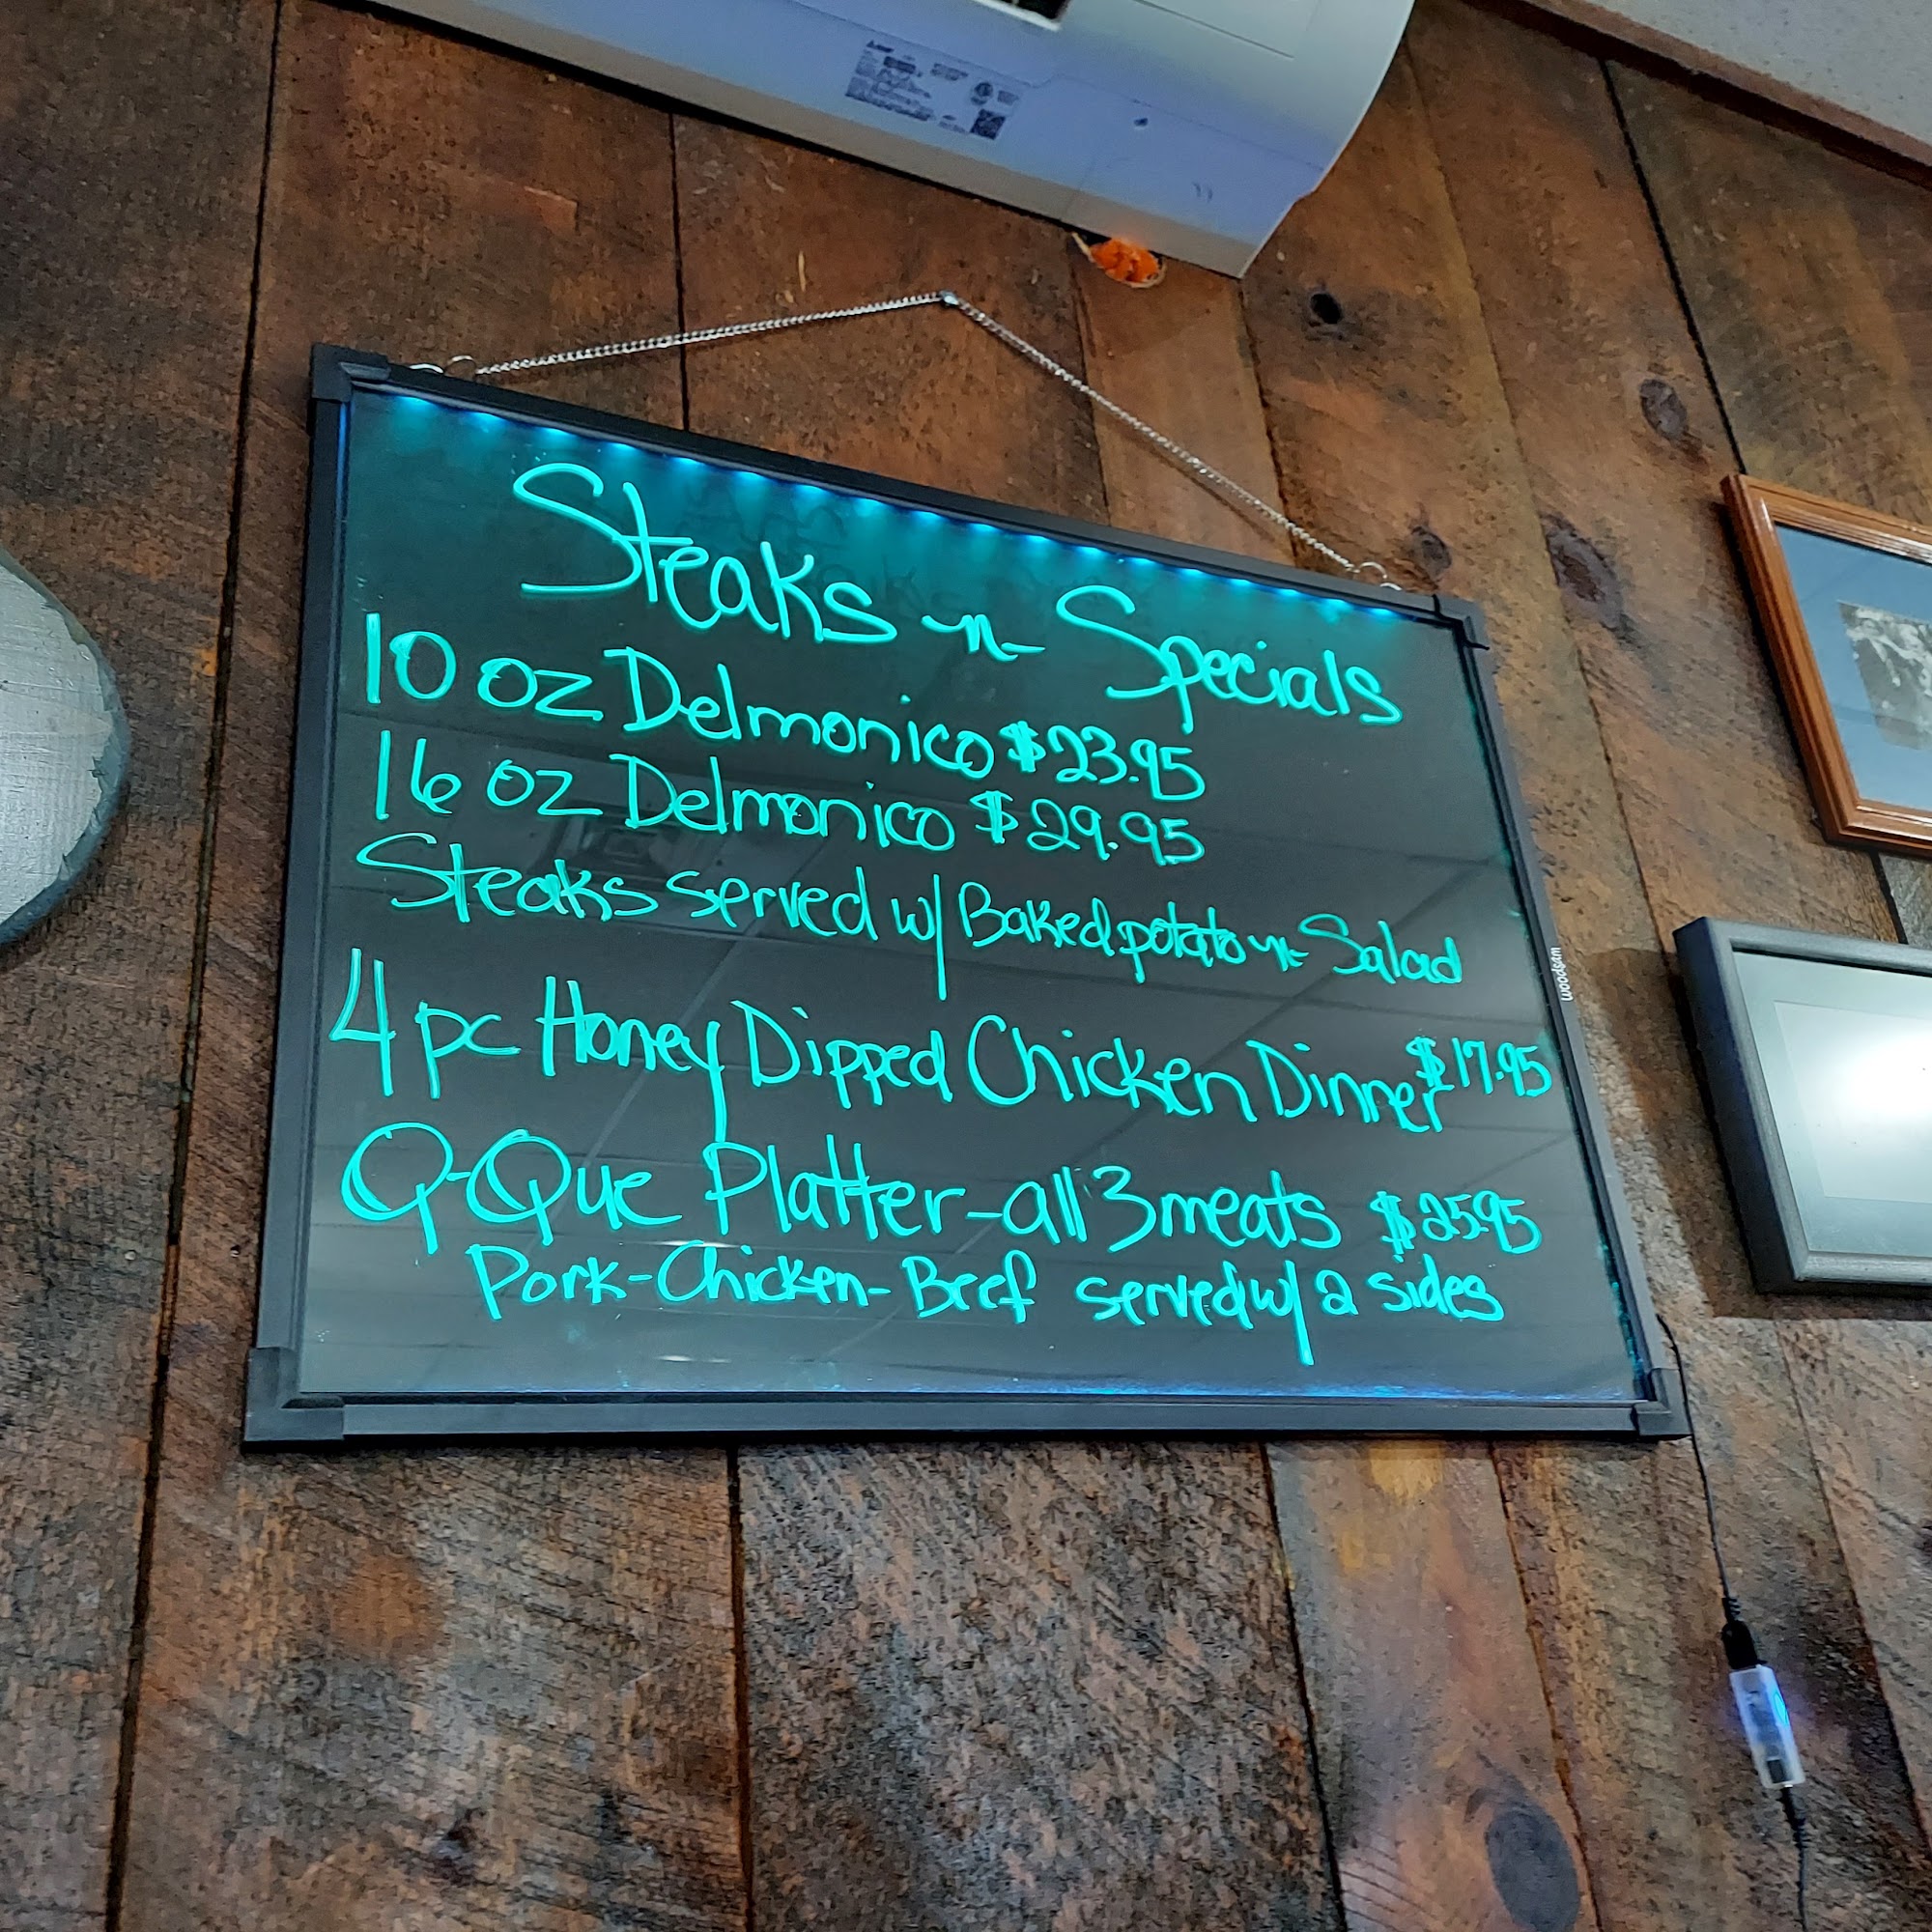 Steaks -n- Specials
10 oz Delmonico $23.95
16 oz Delmonico $29.95
Steaks served w/ Baked potato -n- Salad
4 pc Honey Dipped Chicken Dinner $17.95
Q-Que Platter - all 3 meats $25.95
Pork-Chicken-Beef served w/ 2 sides
woodsam